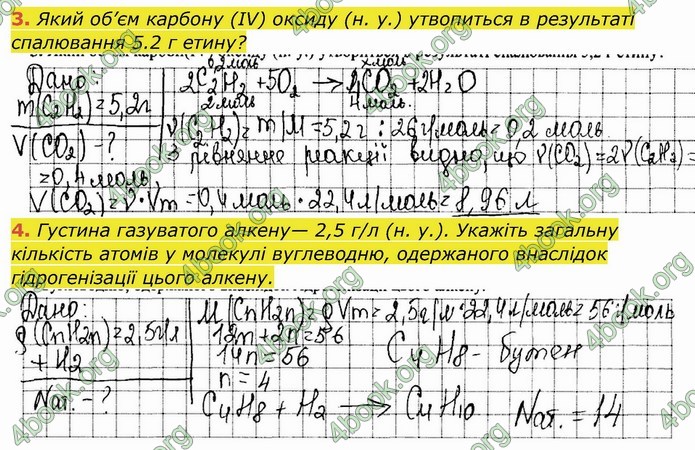 3. Який об’єм карбону (IV) оксиду (н. у.) утвопиться в результаті
спалювання 5.2 г етину?
Дано:
m(C2H2)=5,2г
V(CO2) - ?
0,2моль xмоль
2C2H2 + 5O2 → 4CO2 + 2H2O
2моль 4моль.
ν(C2H2) = m/M = 5,2г : 26г/моль = 0,2 моль.
З рівняння реакції видно, що ν(CO2) = 2ν(C2H2) =
= 0,4 моль
V(CO2) = ν · Vm = 0,4 моль · 22,4 л/моль = 8,96 л
4. Густина газуватого алкену— 2,5 г/л (н. у.). Укажіть загальну
кількість атомів у молекулі вуглеводню, одержаного внаслідок
гідрогенізації цього алкену.
Дано:
ρ(CnH2n)=2,5г/л
+ H2
Nат. - ?
M(CnH2n) = ρVm = 2,5г/л · 22,4 л/моль = 56 г/моль
12n + 2n = 56
14n = 56
n = 4
C4H8 - бутен
C4H8 + H2 → C4H10
Nат. = 14
4book.org